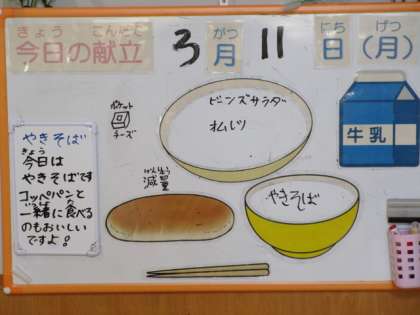 きょう こんだて
今日の献立
3月11日(月)
がつ にち げつ
ポケット
チーズ
ビーンズサラダ
牛乳
げんりょう
減量
やきそば
やきそば
きょう
今日は
やきそばです
コッペパンと
いっしょ た
一緒に食べる
のもおいしい
ですよ!